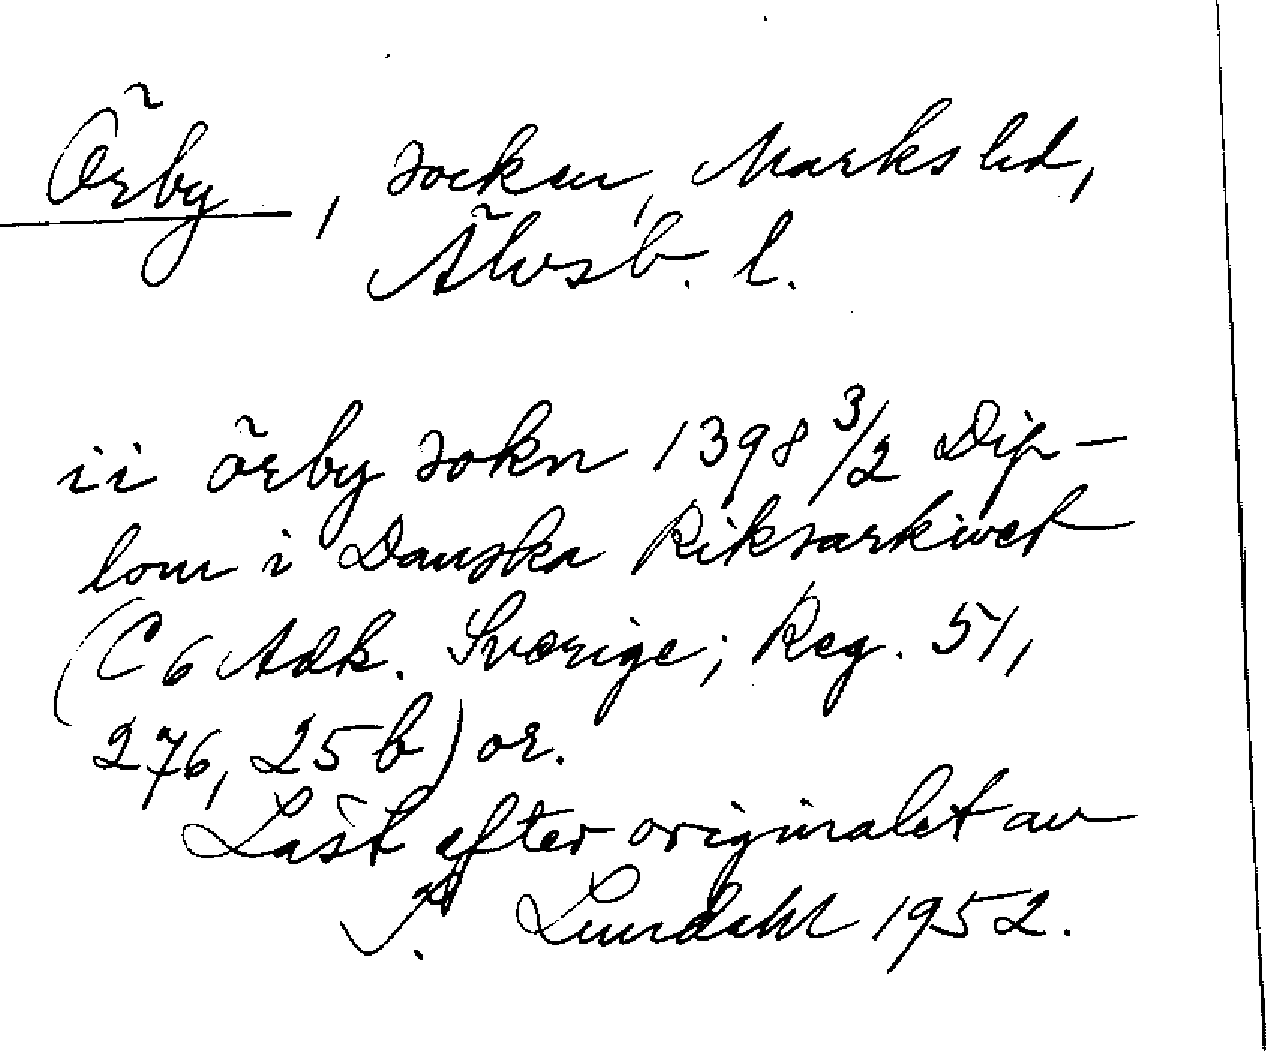 Örby, socken, Marks hd,
Älvsb. l.
ii örby sokn 1398 3/2 Dip-
lom i Danska Riksarkivet
(C 6 Adk. Sverige; Reg. 51,
276, 25 b) or.
Läst efter originalet av
I. Lundahl 1952.